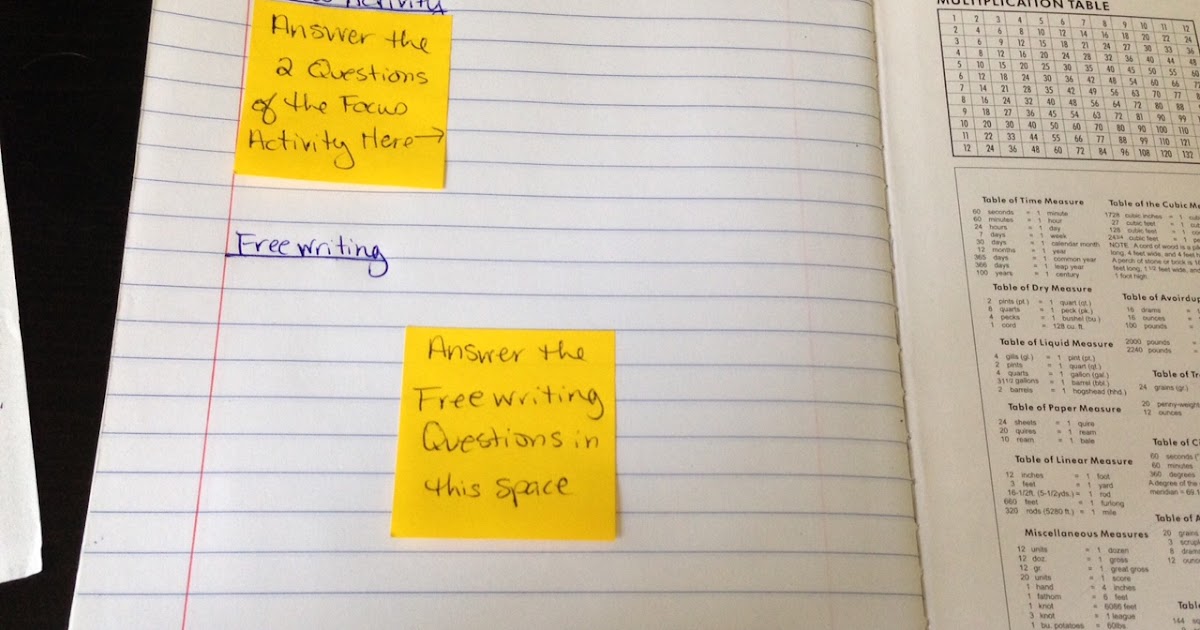 Activity
Answer the
2 Questions
of the Focus
Activity Here→
Free writing
Answer the
Free writing
Questions in
this space
MULTIPLICATION TABLE
1 2 3 4 5 6 7 8 9 10 11 12
2 4 6 8 10 12 14 16 18 20 22 24
3 6 9 12 15 18 21 24 27 30 33 36
4 8 12 16 20 24 28 32 36 40 44 48
5 10 15 20 25 30 35 40 45 50 55 60
6 12 18 24 30 36 42 48 54 60 66
7 14 21 28 35 42 49 56 63 70 77
8 16 24 32 40 48 56 64 72 80 88
9 18 27 36 45 54 63 72 81 90 99
10 20 30 40 50 60 70 80 90 100 110
11 22 33 44 55 66 77 88 99 110 121
12 24 36 48 60 72 84 96 108 120 132
Table of Time Measure
60 seconds = 1 minute
60 minutes = 1 hour
24 hours = 1 day
7 days = 1 week
30 days = 1 calendar month
12 months = 1 year
365 days = 1 common year
366 days = 1 leap year
100 years = 1 century
Table of Dry Measure
2 pints (pt.) = 1 quart (qt.)
8 quarts = 1 peck (pk.)
4 pecks = 1 bushel (bu.)
1 cord = 128 cu. ft.
Table of Liquid Measure
4 gills (gl.) = 1 pint (pt.)
2 pints = 1 quart (qt.)
4 quarts = 1 gallon (gal.)
31½ gallons = 1 barrel (bbl.)
2 barrels = 1 hogshead (hhd.)
Table of Paper Measure
24 sheets = 1 quire
20 quires = 1 ream
10 ream = 1 bale
Table of Linear Measure
12 inches = 1 foot
3 feet = 1 yard
16-1/2ft. (5-1/2yds.) = 1 rod
660 feet = 1 furlong
320 rods (5280 ft.) = 1 mile
Miscellaneous Measures
12 units = 1 dozen
12 doz. = 1 gross
12 gr. = 1 great gross
20 units = 1 score
1 hand = 4 inches
1 fathom = 6 feet
1 knot = 6086 feet
3 knot = 1 league
1 bu. potatoes = 60lbs.
Table of the Cubic
1728 cubic inches = 1
27 cubic feet = 1
128 cubic feet = 1
NOTE: A cord of wood is a
long, 4 feet wide, and 4 feet
A perch of stone or brick is
feet long, 1 1/2 feet wide, and
1 foot high.
Table of
16 drams =
16 ounces =
100 pounds =
2000 pounds =
2240 pounds =
Table of
24 grains (gr.)
20
12 ounces
Table of
60 seconds
60 minutes
360 degrees
A degree of the
meridian = 69.
Table of
20 grains
3
8
12
144